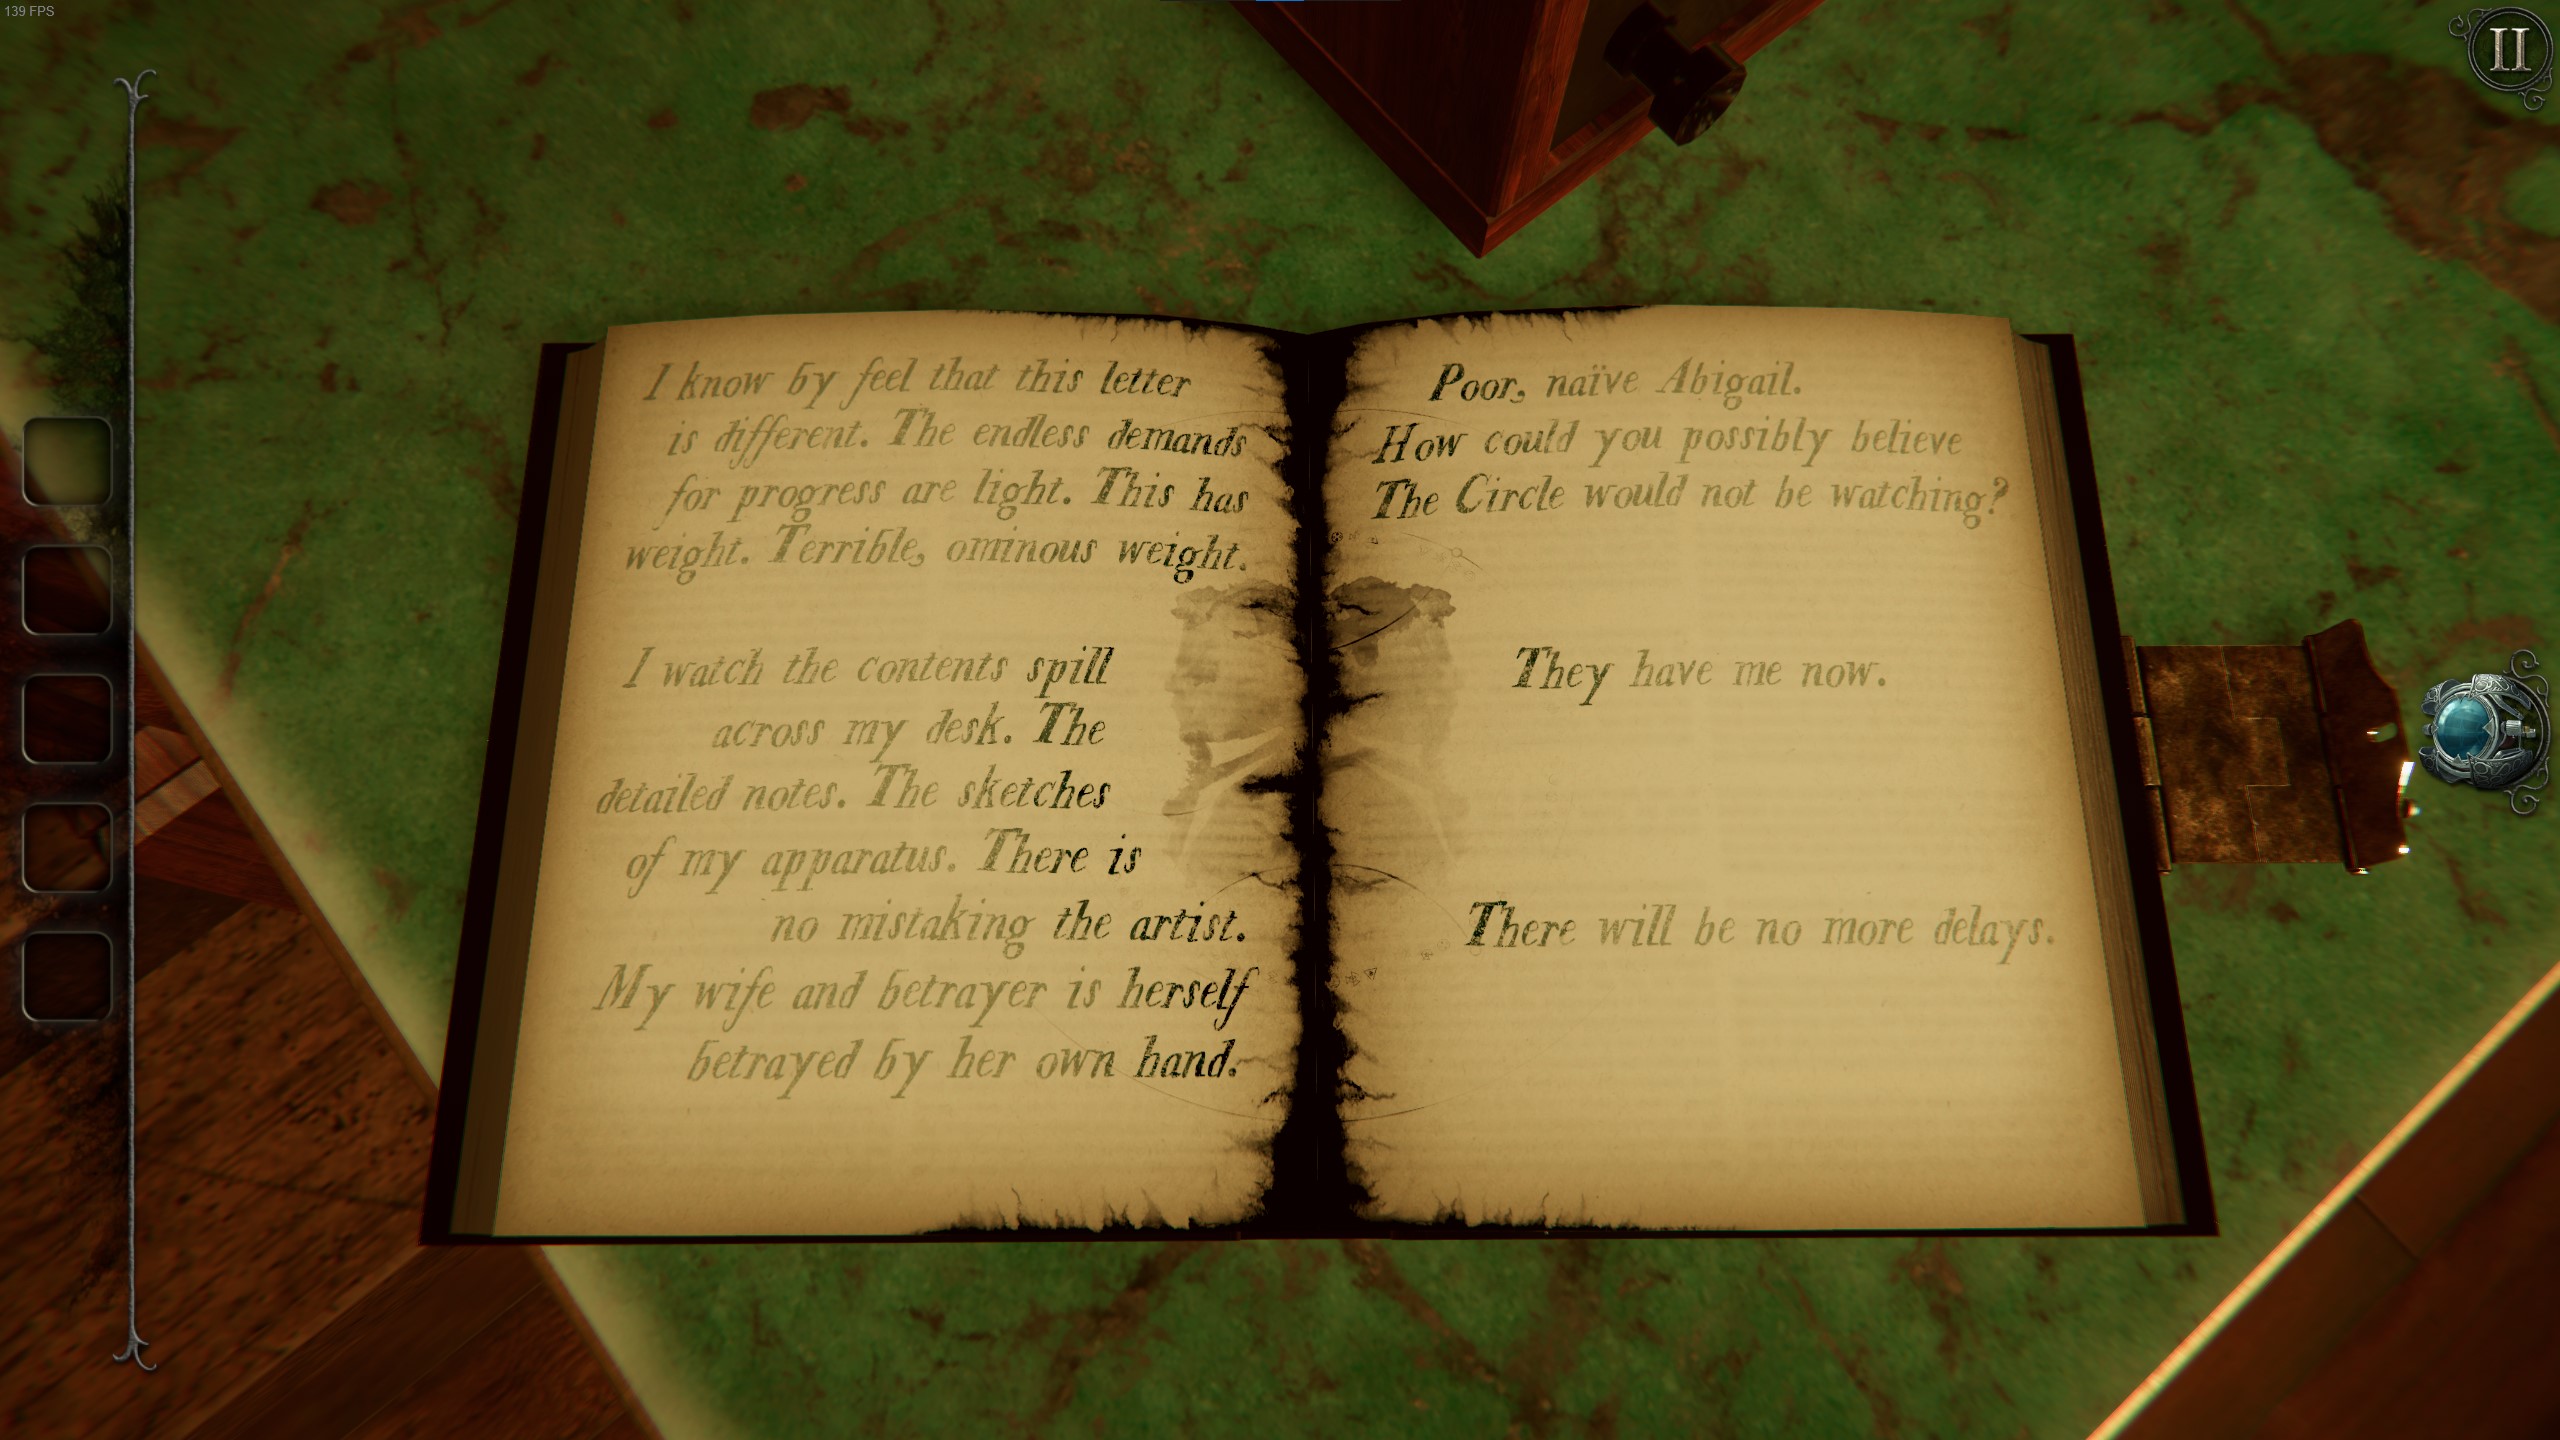 139 FPS
II
I know by feel that this letter
is different. The endless demands
for progress are light. This has
weight. Terrible, ominous weight.
I watch the contents spill
across my desk. The
detailed notes. The sketches
of my apparatus. There is
no mistaking the artist.
My wife and betrayer is herself
betrayed by her own hand.
Poor, naïve Abigail.
How could you possibly believe
The Circle would not be watching?
They have me now.
There will be no more delays.